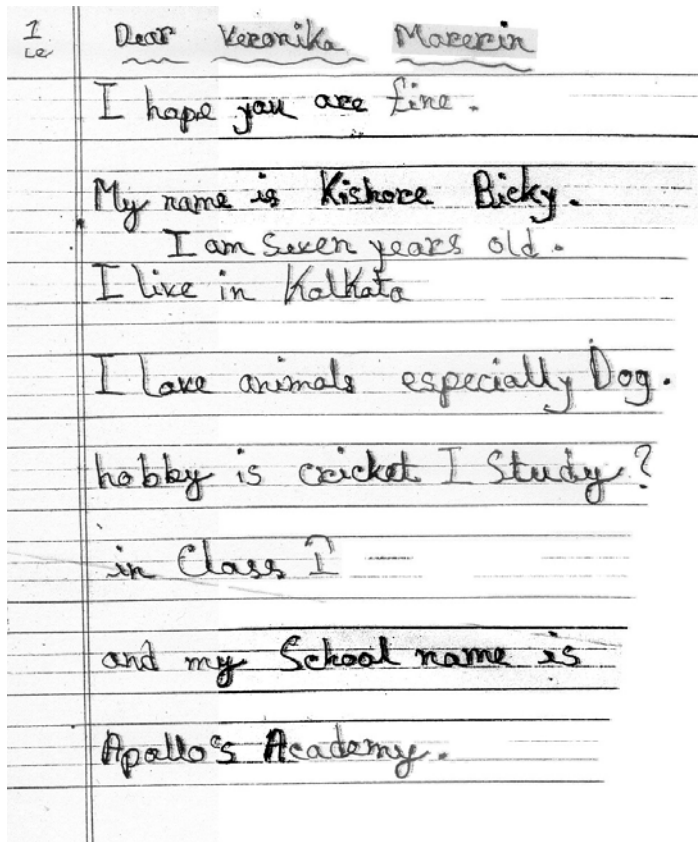 1
Dear Veronika Mazerin
I hope you are fine.
My name is Kishore Bicky.
I am Seven years old.
I live in Kolkata
I love animals especially Dog.
hobby is cricket I Study?
in Class I
and my School name is
Apollo's Academy.